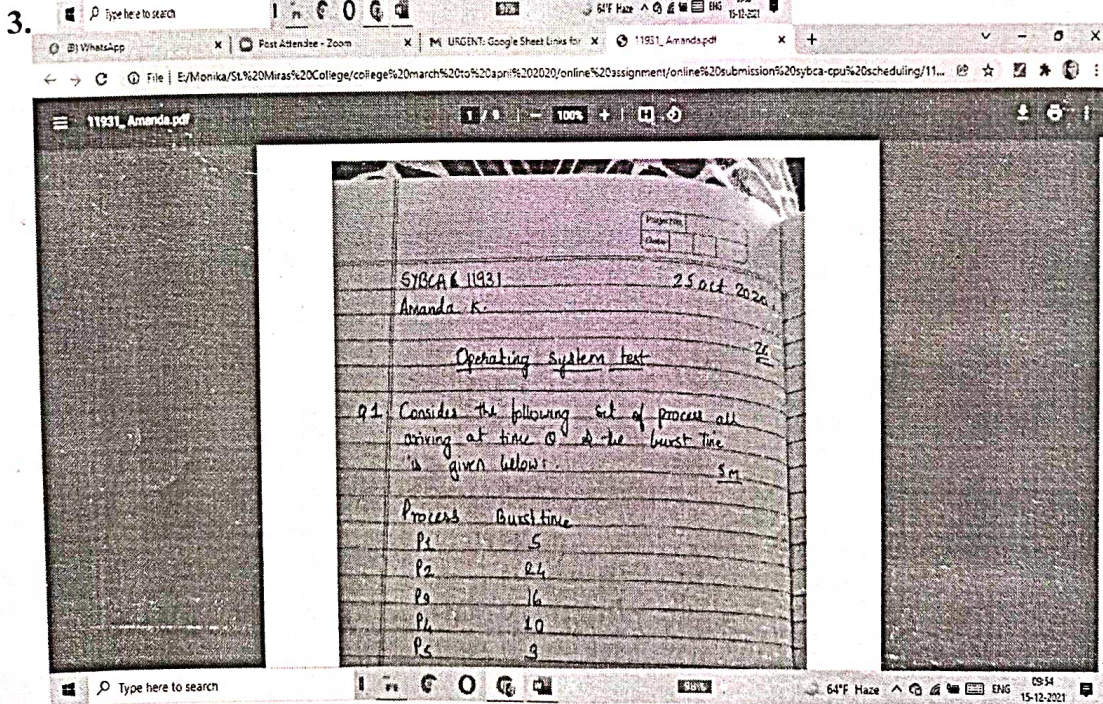 3.
Type here to search
64°F Haze ENG
15-12-2021
WhatsApp × Post Attendee - Zoom × URGENT: Google Sheet Links for × 11931_Amanda.pdf × +
File | E:/Monika/St.%20Miras%20College/college%20march%20to%20april%202020/online%20assignment/online%20submission%20sybca-cpu%20scheduling/11...
11931_Amanda.pdf 1 / 9 − 100% +
Page No.
Date
SYBCA 11931 25 oct 2020
Amanda K.
Operating system test
Q1. Consider the following set of process all
arriving at time 0 & the burst time
is given below: 5M
Process Burst time
P1 5
P2 24
P3 16
P4 10
P5 3
Type here to search 98% 64°F Haze ENG 09:54
15-12-2021